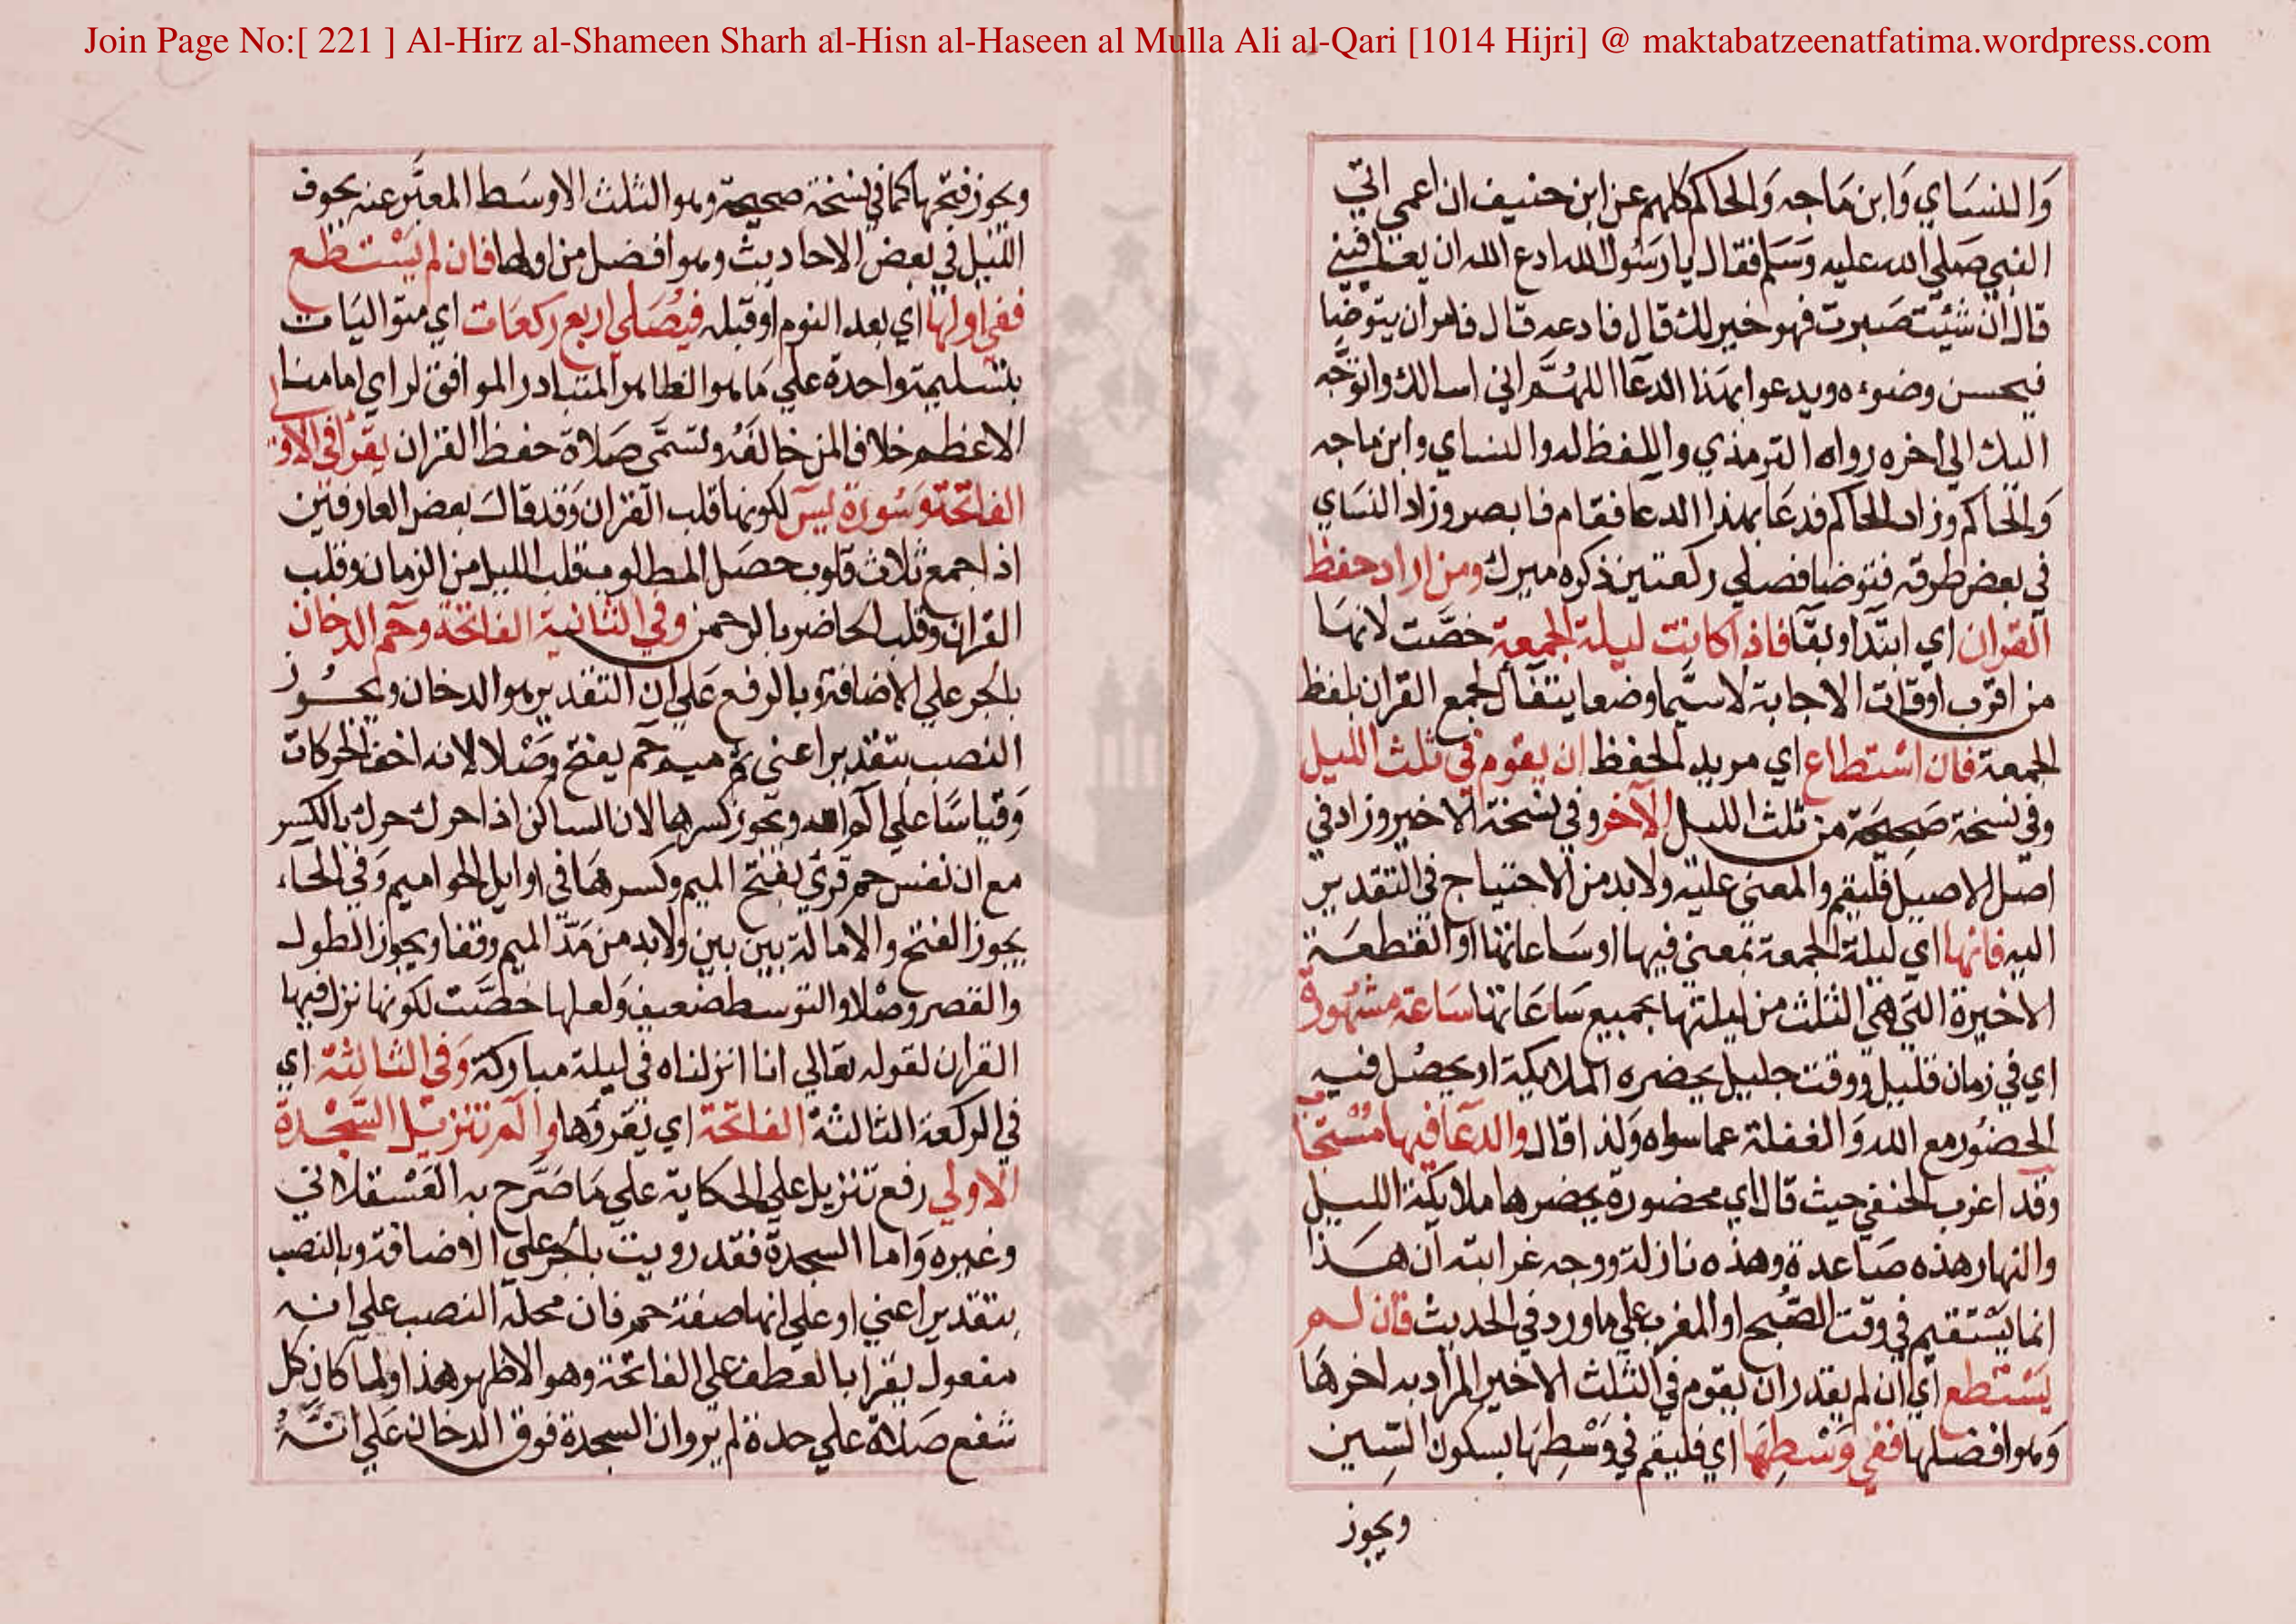 Join Page No:[ 221 ] Al-Hirz al-Shameen Sharh al-Hisn al-Haseen al Mulla Ali al-Qari [1014 Hijri] @ maktabatzeenatfatima.wordpress.com
وَالنسَاي وَابن مَاجه وَالحاكم كلهم عن ابن حنيف ان اعمى اتي
النبي صَلي الله عليه وَسَلم فقال يا رَسُول الله ادع الله ان يعافيني
قال ان شئيت صَبرت فهو خير لك قال فادعه قال فامر ان يتوضا
فيحسن وضوءه ويدعوا بهذا الدعا اللهُمَّ اني اسالك واتوَجَّه
اليك الي اخره رواه الترمذي واللفظ له والنساي وابن ماجه
وَالحاكم وزاد الحاكم فدعَا بهذا الدعا فقام فابصر وزاد النسَاي
في بعض طرقه فتوضا فصلي ركعتين ذكره ميرك ومن اراد حفظ
القران اي ابتدا وبقا فاذا كانت ليلة الجمعة خصَّت لانهَا
من اقرب اوقات الاجابة لاسيَّما وضعا يتفأل لجمع القران بلفظ
الجمعة فان اسْتطاع اي مريد الحفظ ان يقوم في ثلث الليل
وفي نسخة صَحِيحَة من ثلث الليل الآخر وفي نسخة الاخير وزاد في
اصل الاصيل فليقم والمعني عليه ولابد من الاحتياج في التقدير
اليه فانها اي ليلة الجمعة بمعني فيها او سَاعاتها او القطعَة
الاخيرة التي هي الثلث من ليلتها بجميع سَاعَاتها سَاعَة مشهُودة
اي في زمان قليل ووقت جليل يحضره الملايكة او يحصُل فيه
الحضُور مع الله وَالغفلة عما سواه وَلذا قال والدعَا فيها مُسْتجَا
وقد اغرب الحنفي حيث قال اي محضورة يحضرها ملايكة الليل
والنهار هذه صَاعدة وهذه نازلة ووجه غرابته ان هَذا
انما يسْتقيم في وقت الصُّبح او المغرب علي ما ورد في الحديث فان لم
يَسْتطع اي ان لم يقدر ان يقوم في الثلث الاخير المراد به اخرهَا
وَهو افضلها ففي وَسْطِهَا اي فليقم في وَسْطِهَا بسكون السِّين
ويجوز
ويجوز فتحها كما في نسخة صحيحة وهو الثلث الاوسَط المعبَّر عنه بجوف
الليل في بعض الاحاديث وهو افضل من اولها فان لم يَسْتطع
ففي اولها اي بعد النوم او قبله فيُصَلي اربع ركعَات اي متواليَات
بتسليمة واحدة علي مَا هو الظاهر المتبادر الموافق لراي امامنا
الاعظم خلافا لمن خالفَهُ وتسَمَّى صَلاة حفظ القران يقرُأ في الاو
الفاتحة وَسُورة يسَ لكونها قلب القران وَقد قالَ بعض العارفين
اذا جمع ثلاث قلوب حصَل المطلوب قلب الليل من الزمان وقلب
القران وقلب الحاضر بالرحمن وفي الثانية الفاتحة وحم الدخان
بالجر علي الاضافة وبالرفع عَلي ان التقدير هو الدخان ويجُوز
النصب بتقدير اعني ثم ميم حم يفتح وَصْلا لانه اخف الحركات
وَقياسًا علي الم الله ويجوز كسرها لان الساكن اذا حرك حرك بالكسر
مع ان نفس حم قري بفتح الميم وكسرهَا في اوايل الحواميم وَفي الحَاء
يجوز الفتح والامالة بين بين ولابد من مَدّ الميم وقفا ويجواز الطول
والقصر وصْلا والتوسط ضعيف وَلعلها خصَّت لكونها نزل فيها
القران لقوله تعَالي انا انزلناه في ليلة مباركة وَفي الثالثة اي
في الركعة الثالثة الفاتحة اي يقرؤها والم تنزيل السَّجْدة
الاولي رفع تنزيل علي الحكاية علي مَا صَرَّح به العَسْقلاني
وغيره وَاما السجدة فقد رويت بالجر علي الاضافة وبالنصب
بتقدير اعني او علي انها صفة حم فان محله النصب علي انه
مفعول يقرا بالعطف علي الفاتحة وهو الاظهر هذا ولما كان كل
شفع صَلاة علي حدة لم يروا ان السجدة فوق الدخان عَلي انَّهُ